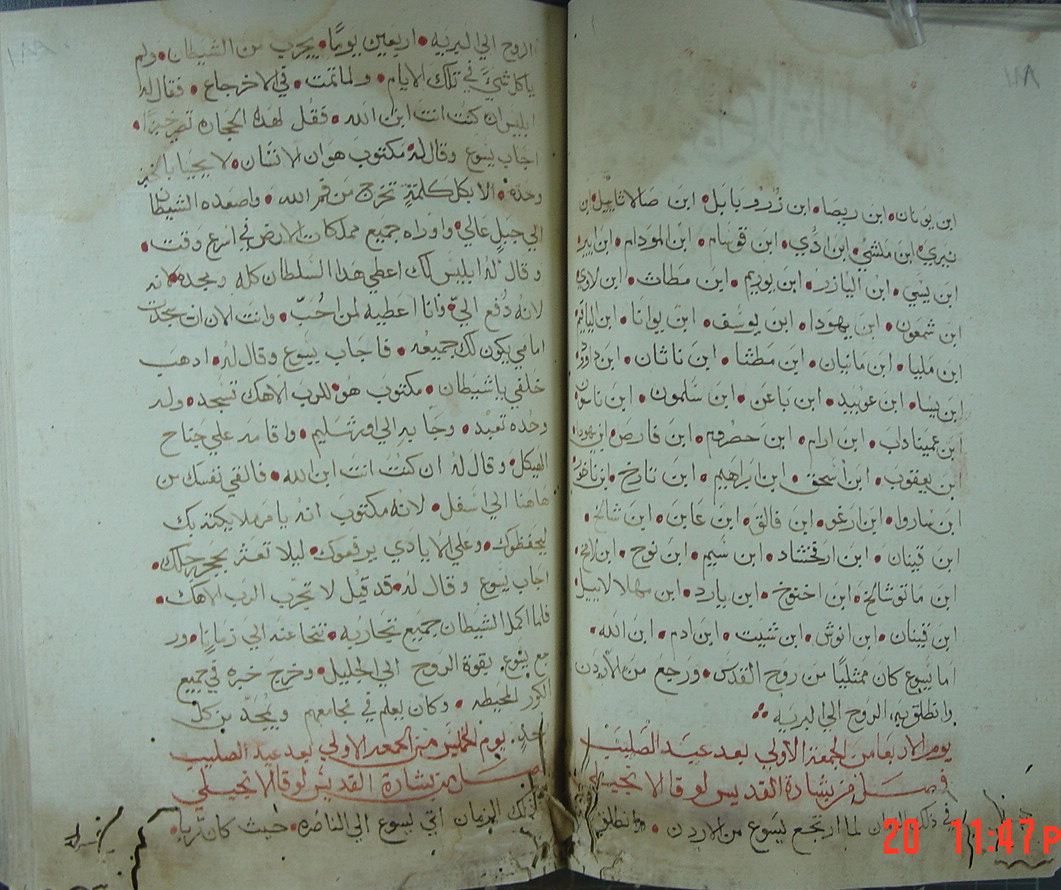 ١٨٨
ابن يونان • ابن ريصا • ابن زُروبابل • ابن صالاتاييل • ابن
نيري • ابن ملشي • ابن ادّي • ابن قوسام • ابن المودام • ابن ايير
ابن يسي • ابن اليازر • ابن يوريم • ابن مطاث • ابن لاوي
ابن شمعون • ابن يهودا • ابن يوسف • ابن يوانا • ابن الياقيم
ابن مليا • ابن ماينان • ابن مطثا • ابن ناثان • ابن داوود
ابن يسا • ابن عوبيد • ابن باعن • ابن سلمون • ابن ناسون
ابن عميناداب • ابن ارام • ابن حصروم • ابن فارص • ابن يهودا
ابن يعقوب • ابن اسحق • ابن ابراهيم • ابن تارخ • ابن ناخور
ابن ساروا • ابن ارغو • ابن فالق • ابن عابن • ابن شالخ •
ابن قينان • ابن ارفخشاد • ابن سيم • ابن نوح • ابن لامخ
ابن ماتوشالخ • ابن اخنوخ • ابن يارد • ابن مهلالاييل
ابن قينان • ابن انوش • ابن شيت • ابن ادم • ابن الله •
اما يسوع كان ممتليًا من روح القدس • ورجع من الاردن
وانطلق به الروح الي البريه
يوم الاربعا من الجمعة الاولي بعد عيد الصليب
فصل من بشارة القديس لوقا الانجيلي
في ذلك الزمان لما ارتجع يسوع من الاردن • وانطلق
١٨٩
الروح الي البريه • اربعين يومًا • يجرب من الشيطان • ولم
ياكل شيً في تلك الايام • ولما تمت • في الاخر جاع • فقال له
ابليس ان كنت انت ابن الله • فقُل لهذه الحجاره تصر خبزًا •
اجاب يسوع وقال له مكتوب هو ان الانسان • لا يحيا بالخبز
وحده • الا بكل كلمةٍ تخرج من فم الله • واصعده الشيطان
الي جبل عالي • واوراه جميع مملكات الارض في اسرع وقت •
وقال له ابليس لك اعطي هذا السلطان كله ومجده • لانه
لانه دُفع اليّ • وانا اعطيه لمن احُبّ • وانت الان ان سجدت
امامي يكون لك جميعه • فاجاب يسوع وقال له • اذهب
خلفي يا شيطان • مكتوب هو للرب الاهك تسجد • وله
وحده تعبد • وجا به الي اورشليم • واقامه علي جناح
الهيكل • وقال له ان كنت انت ابن الله • فالقي نفسك من
هاهنا الي اسفل • لانه مكتوب انه يامر ملايكته بك
ليحفظوك • وعلي الايادي يرفعوك • ليلا تعثر بحجر رجلك •
اجاب يسوع وقال له • قد قيل لا تجرب الرب الاهك •
فلما اكمل الشيطان جميع تجاريبه • تنحا عنه الي زمانٍ • ور
جع يسوع • بقوة الروح الي الجليل • وخرج خبره في جميع
الكور المحيطه • وكان يعلم في مجامعهم ويُمجد من كل
احد • يوم الخميس من الجمعه الاولي بعد عيد الصليب
فصل من بشارة القديس لوقا الانجيلي
في ذلك الزمان اتي يسوع الي الناصره • حيث كان تربا •
20 11:47 P